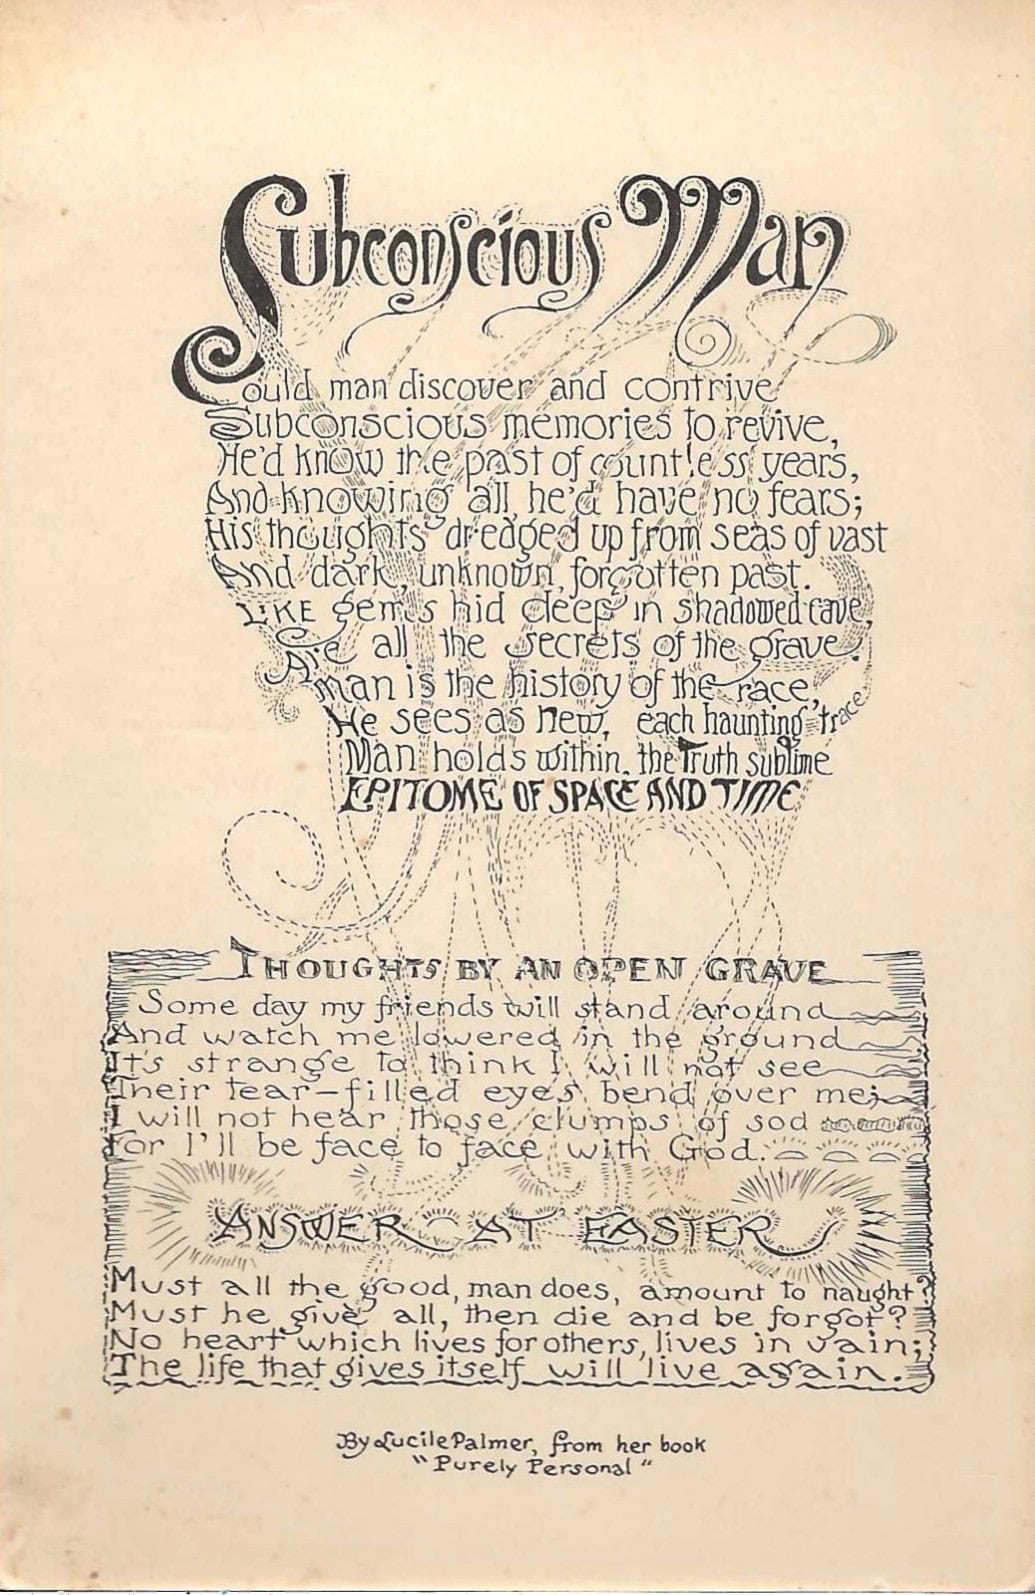 Subconscious Man
Could man discover and contrive
Subconscious memories to revive,
He'd know the past of countless years,
And knowing all, he'd have no fears;
His thoughts dredged up from seas of vast
And dark, unknown, forgotten past.
LIKE gems hid deep in shadowed cave,
Are all the secrets of the grave.
A man is the history of the race,
He sees as new, each haunting trace
Man holds within, the Truth sublime
EPITOME OF SPACE AND TIME
THOUGHTS BY AN OPEN GRAVE
Some day my friends will stand around
And watch me lowered in the ground
It's strange to think I will not see
Their tear-filled eyes bend over me;
I will not hear those clumps of sod
For I'll be face to face with God.
ANSWER AT EASTER
Must all the good, man does, amount to naught?
Must he give all, then die and be forgot?
No heart which lives for others, lives in vain;
The life that gives itself will live again.
By Lucile Palmer, from her book
"Purely Personal"